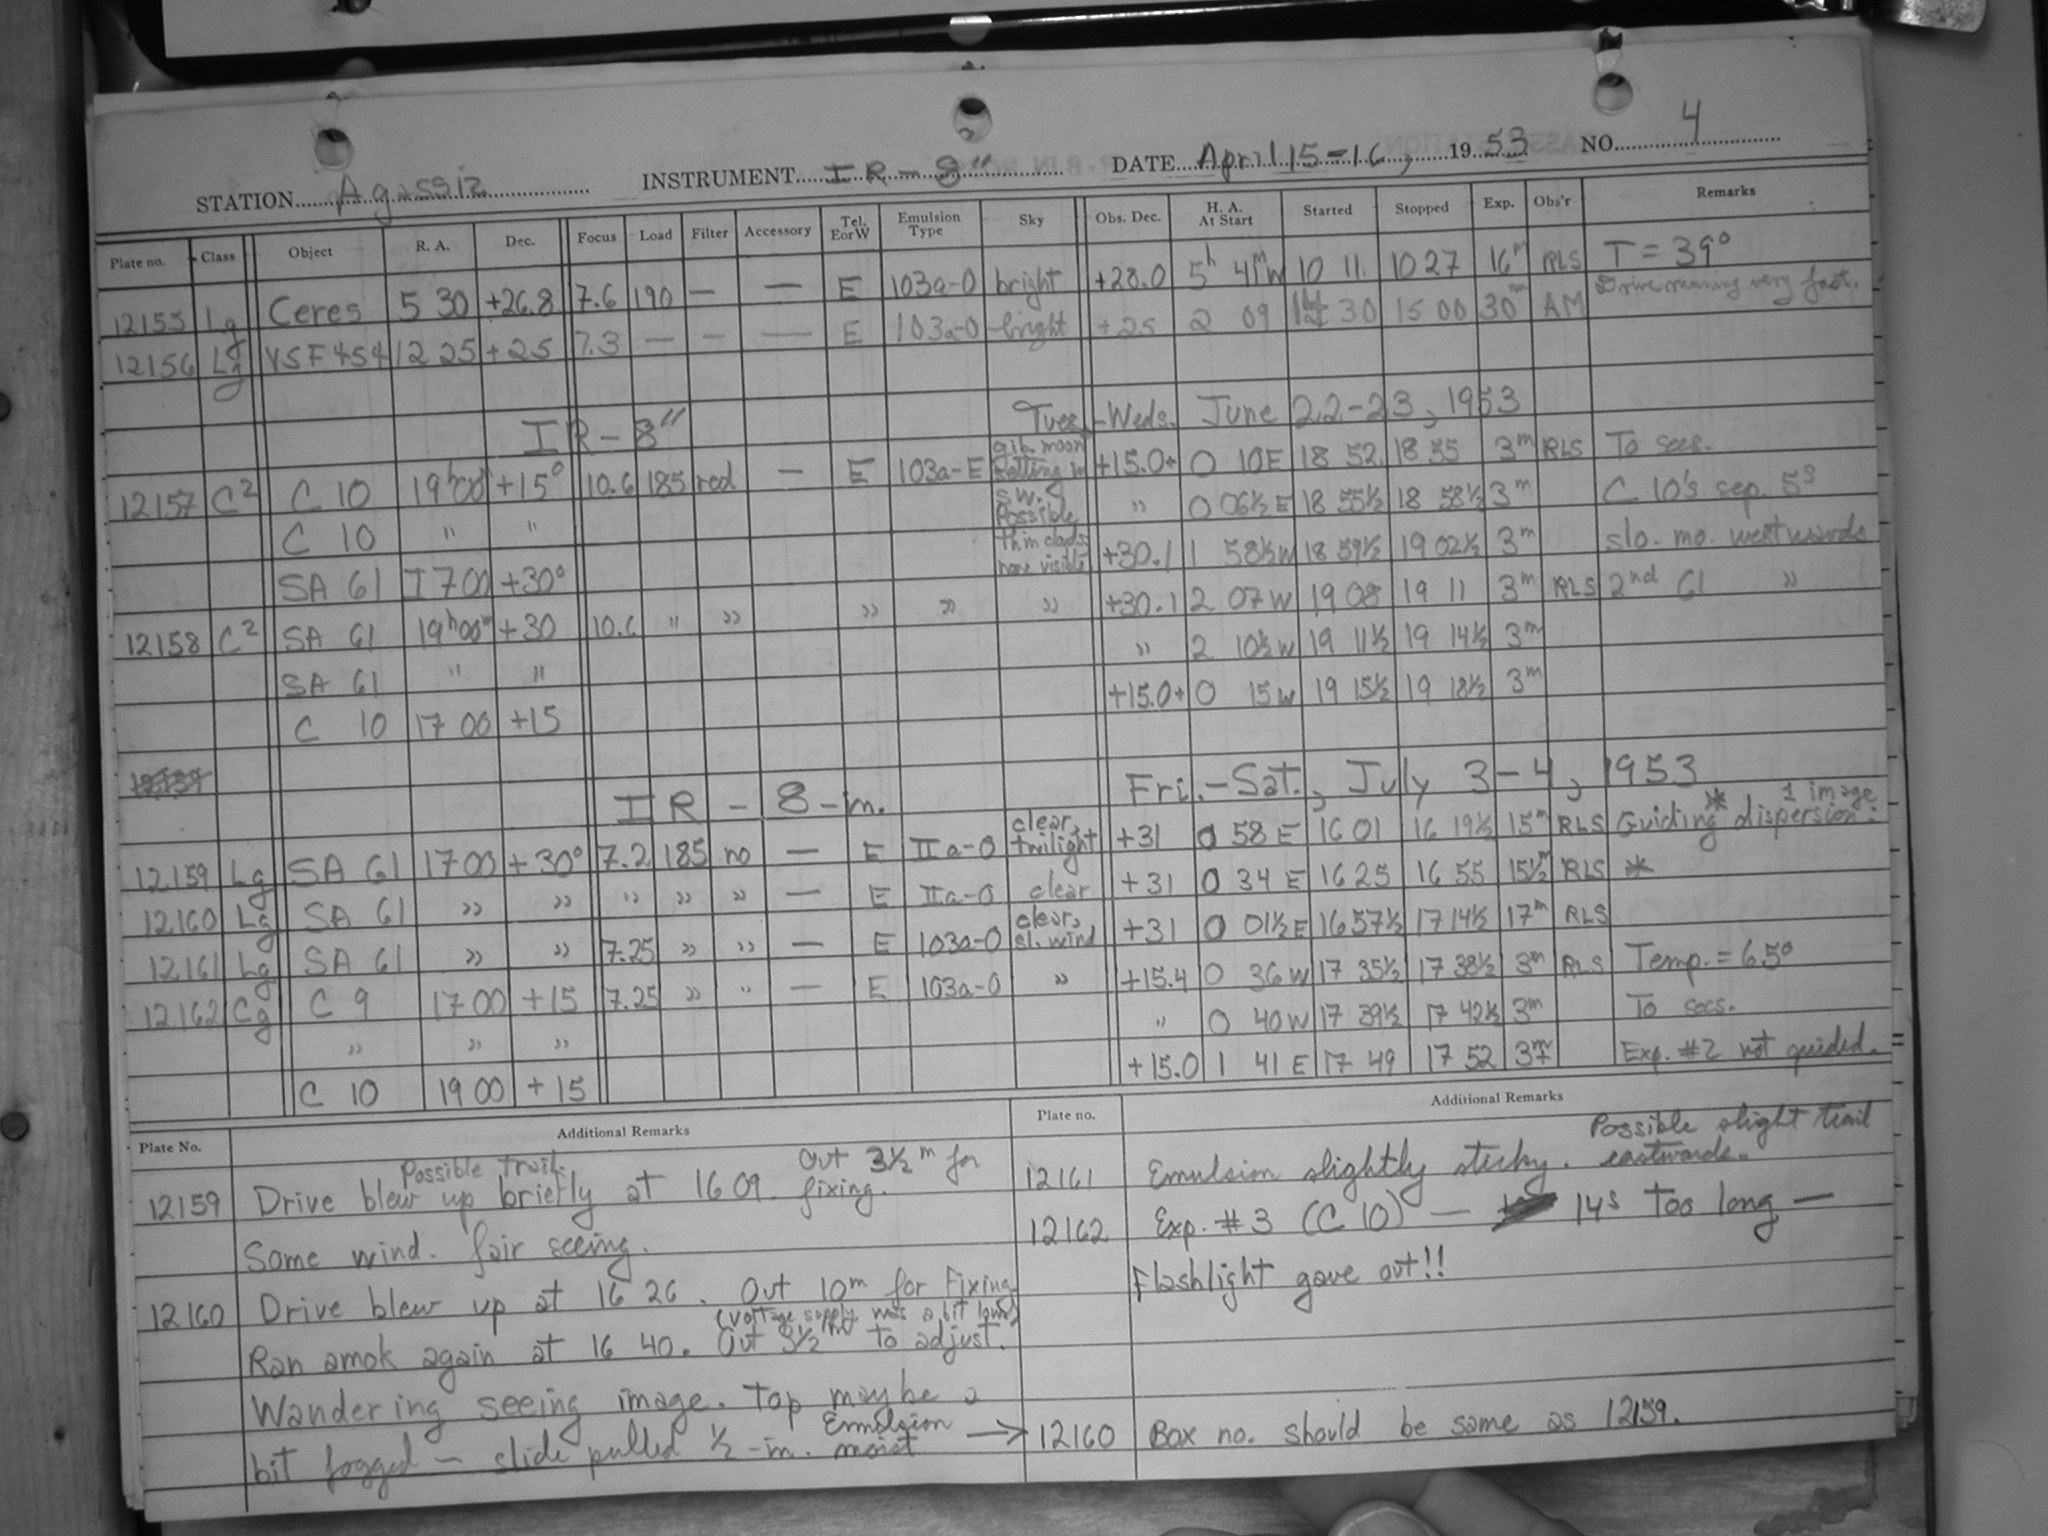 STATION Agassiz INSTRUMENT IR-8" DATE April 15-16, 1953 NO. 4
Plate no. Class Object R. A. Dec. Focus Load Filter Accessory Tel. E or W Emulsion Type Sky Obs. Dec. H. A. At Start Started Stopped Exp. Obs'r Remarks
12155 Lg Ceres 5 30 +26.8 7.6 190 — — E 103a-O bright +28.0 5h 4m W 10 11 10 27 16m RLS T = 39°
12156 Lg VSF 454 12 25 +25 7.3 — — — E 103a-O bright +25 2 09 30 15 00 30m AM Drive running very fast.
IR-8" Tues.-Weds. June 22-23, 1953
12157 C2 C 10 19h00 +15° 10.6 185 red — E 103a-E gib. moon setting in s.w. Possible thin clouds none visible +15.0+ 0 10E 18 52 18 55 3m RLS To secs.
C 10 " " " 0 06½ E 18 55½ 18 58½ 3m C 10's sep. 5s
SA 61 17 00 +30° +30.1 1 58½ W 18 59½ 19 02½ 3m slo. mo. westwards
12158 C2 SA 61 19h00m +30 10.6 " " " " " +30.1 2 07 W 19 08 19 11 3m RLS 2nd 61 "
SA 61 " " " 2 10½ W 19 11½ 19 14½ 3m
C 10 17 00 +15 +15.0+ 0 15 W 19 15½ 19 18½ 3m
IR-8-in. Fri.-Sat., July 3-4, 1953
12159 Lg SA 61 17 00 +30° 7.2 185 no — E IIa-O clear, twilight +31 0 58 E 16 01 16 19½ 15m RLS Guiding * dispersion: 1 image
12160 Lg SA 61 " " " " " — E IIa-O clear +31 0 34 E 16 25 16 55 15½m RLS *
12161 Lg SA 61 " " 7.25 " " — E 103a-O clear, sl. wind +31 0 01½ E 16 57½ 17 14½ 17m RLS
12162 Cg C 9 17 00 +15 7.25 " " — E 103a-O " +15.4 0 36 W 17 35½ 17 38½ 3m RLS Temp. = 65°
" " " " 0 40 W 17 39½ 17 42½ 3m To secs.
C 10 19 00 +15 +15.0 1 41 E 17 49 17 52 3m+ Exp. #2 not guided.
Plate No. Additional Remarks
Possible trail.
12159 Drive blew up briefly at 16 09. Out 3½m for fixing.
Some wind. fair seeing.
12160 Drive blew up at 16 26. Out 10m for fixing.
(voltage supply was a bit low)
Ran amok again at 16 40. Out 3½m to adjust.
Wandering seeing image. Top maybe a
bit fogged – slide pulled ½-in. Emulsion moist →
Plate no. Additional Remarks
12161 Emulsion slightly sticky. Possible slight trail eastwards.
12162 Exp. #3 (C 10) — 14s too long —
Flashlight gave out!!
12160 Box no. should be same as 12159.